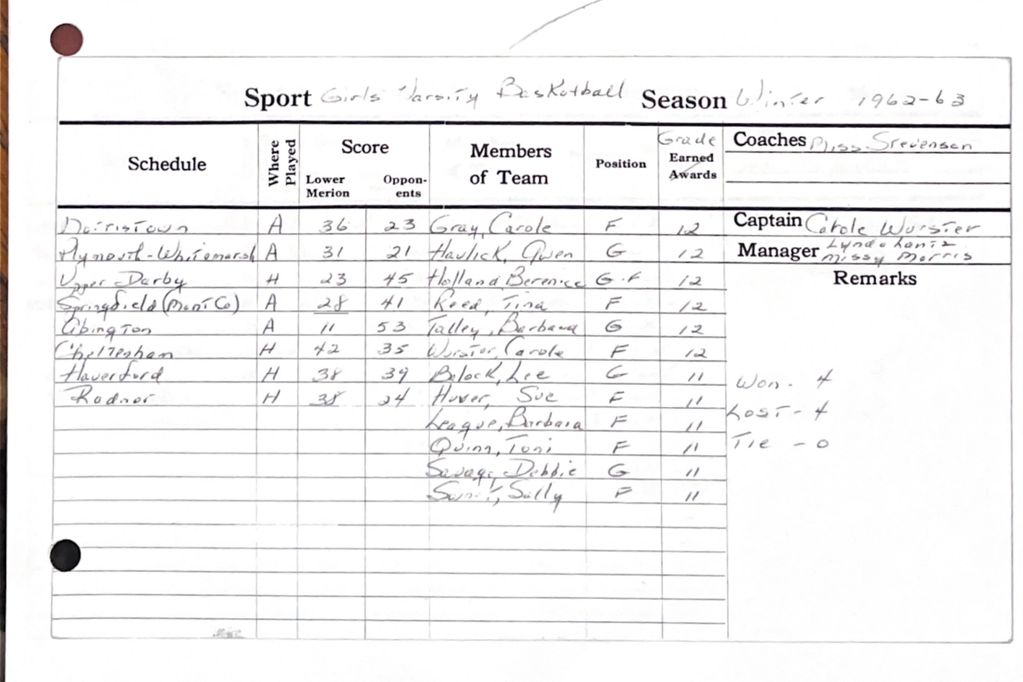 Sport Girls' Varsity Basketball Season Winter 1962-63
Schedule Where Played Score Lower Merion Opponents Members of Team Position Grade Earned Awards Coaches Miss Stevenson
Norristown A 36 23 Gray, Carole F 12 Captain Carole Wurster
Plymouth-Whitemarsh A 31 21 Havlick, Gwen G 12 Manager Lynda Lantz Missy Morris
Upper Darby H 23 45 Holland Berenice G-F 12 Remarks
Springfield (Mont Co) A 28 41 Reed, Tina F 12
Abington A 11 53 Talley, Barbara G 12
Cheltenham H 42 35 Wurster, Carole F 12
Haverford H 38 39 Belock, Lee G 11 Won - 4
Radnor H 38 24 Huver, Sue F 11 Lost - 4
League, Barbara F 11 Tie - 0
Quinn, Toni F 11
Savage, Debbie G 11
Sally F 11